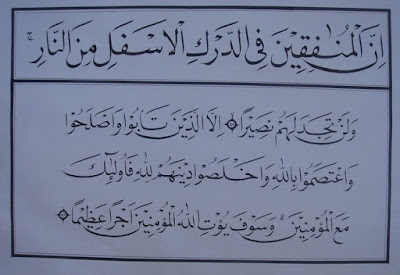 اِنَّ الْمُنَافِقِينَ فِي الدَّرْكِ الْاَسْفَلِ مِنَ النَّارِ ۚ
وَلَنْ تَجِدَ لَهُمْ نَصِيرًا ۝ اِلَّا الَّذِينَ تَابُوا وَاَصْلَحُوا
وَاعْتَصَمُوا بِاللّٰهِ وَاَخْلَصُوا دِينَهُمْ لِلّٰهِ فَاُولٰٓئِكَ
مَعَ الْمُؤْمِنِينَ ۖ وَسَوْفَ يُؤْتِ اللّٰهُ الْمُؤْمِنِينَ اَجْرًا عَظِيمًا ۝